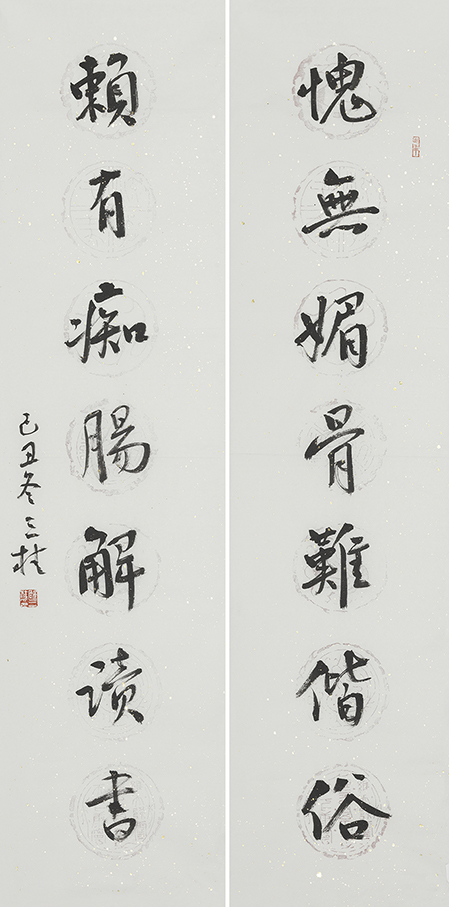 愧無媚骨難偕俗
賴有痴腸解讀書
己丑冬三桂